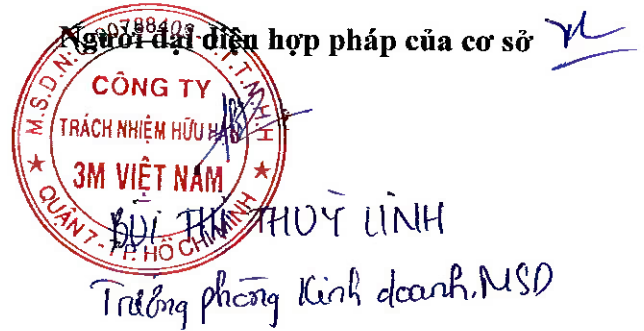 Người đại diện hợp pháp của cơ sở
M.S.D.N: 00788402 - C.T.T.N.H.H
CÔNG TY
TRÁCH NHIỆM HỮU HẠN
3M VIỆT NAM
QUẬN 7 - T.P. HỒ CHÍ MINH
BÙI THỊ THUỲ LINH
Trưởng phòng Kinh doanh. MSD